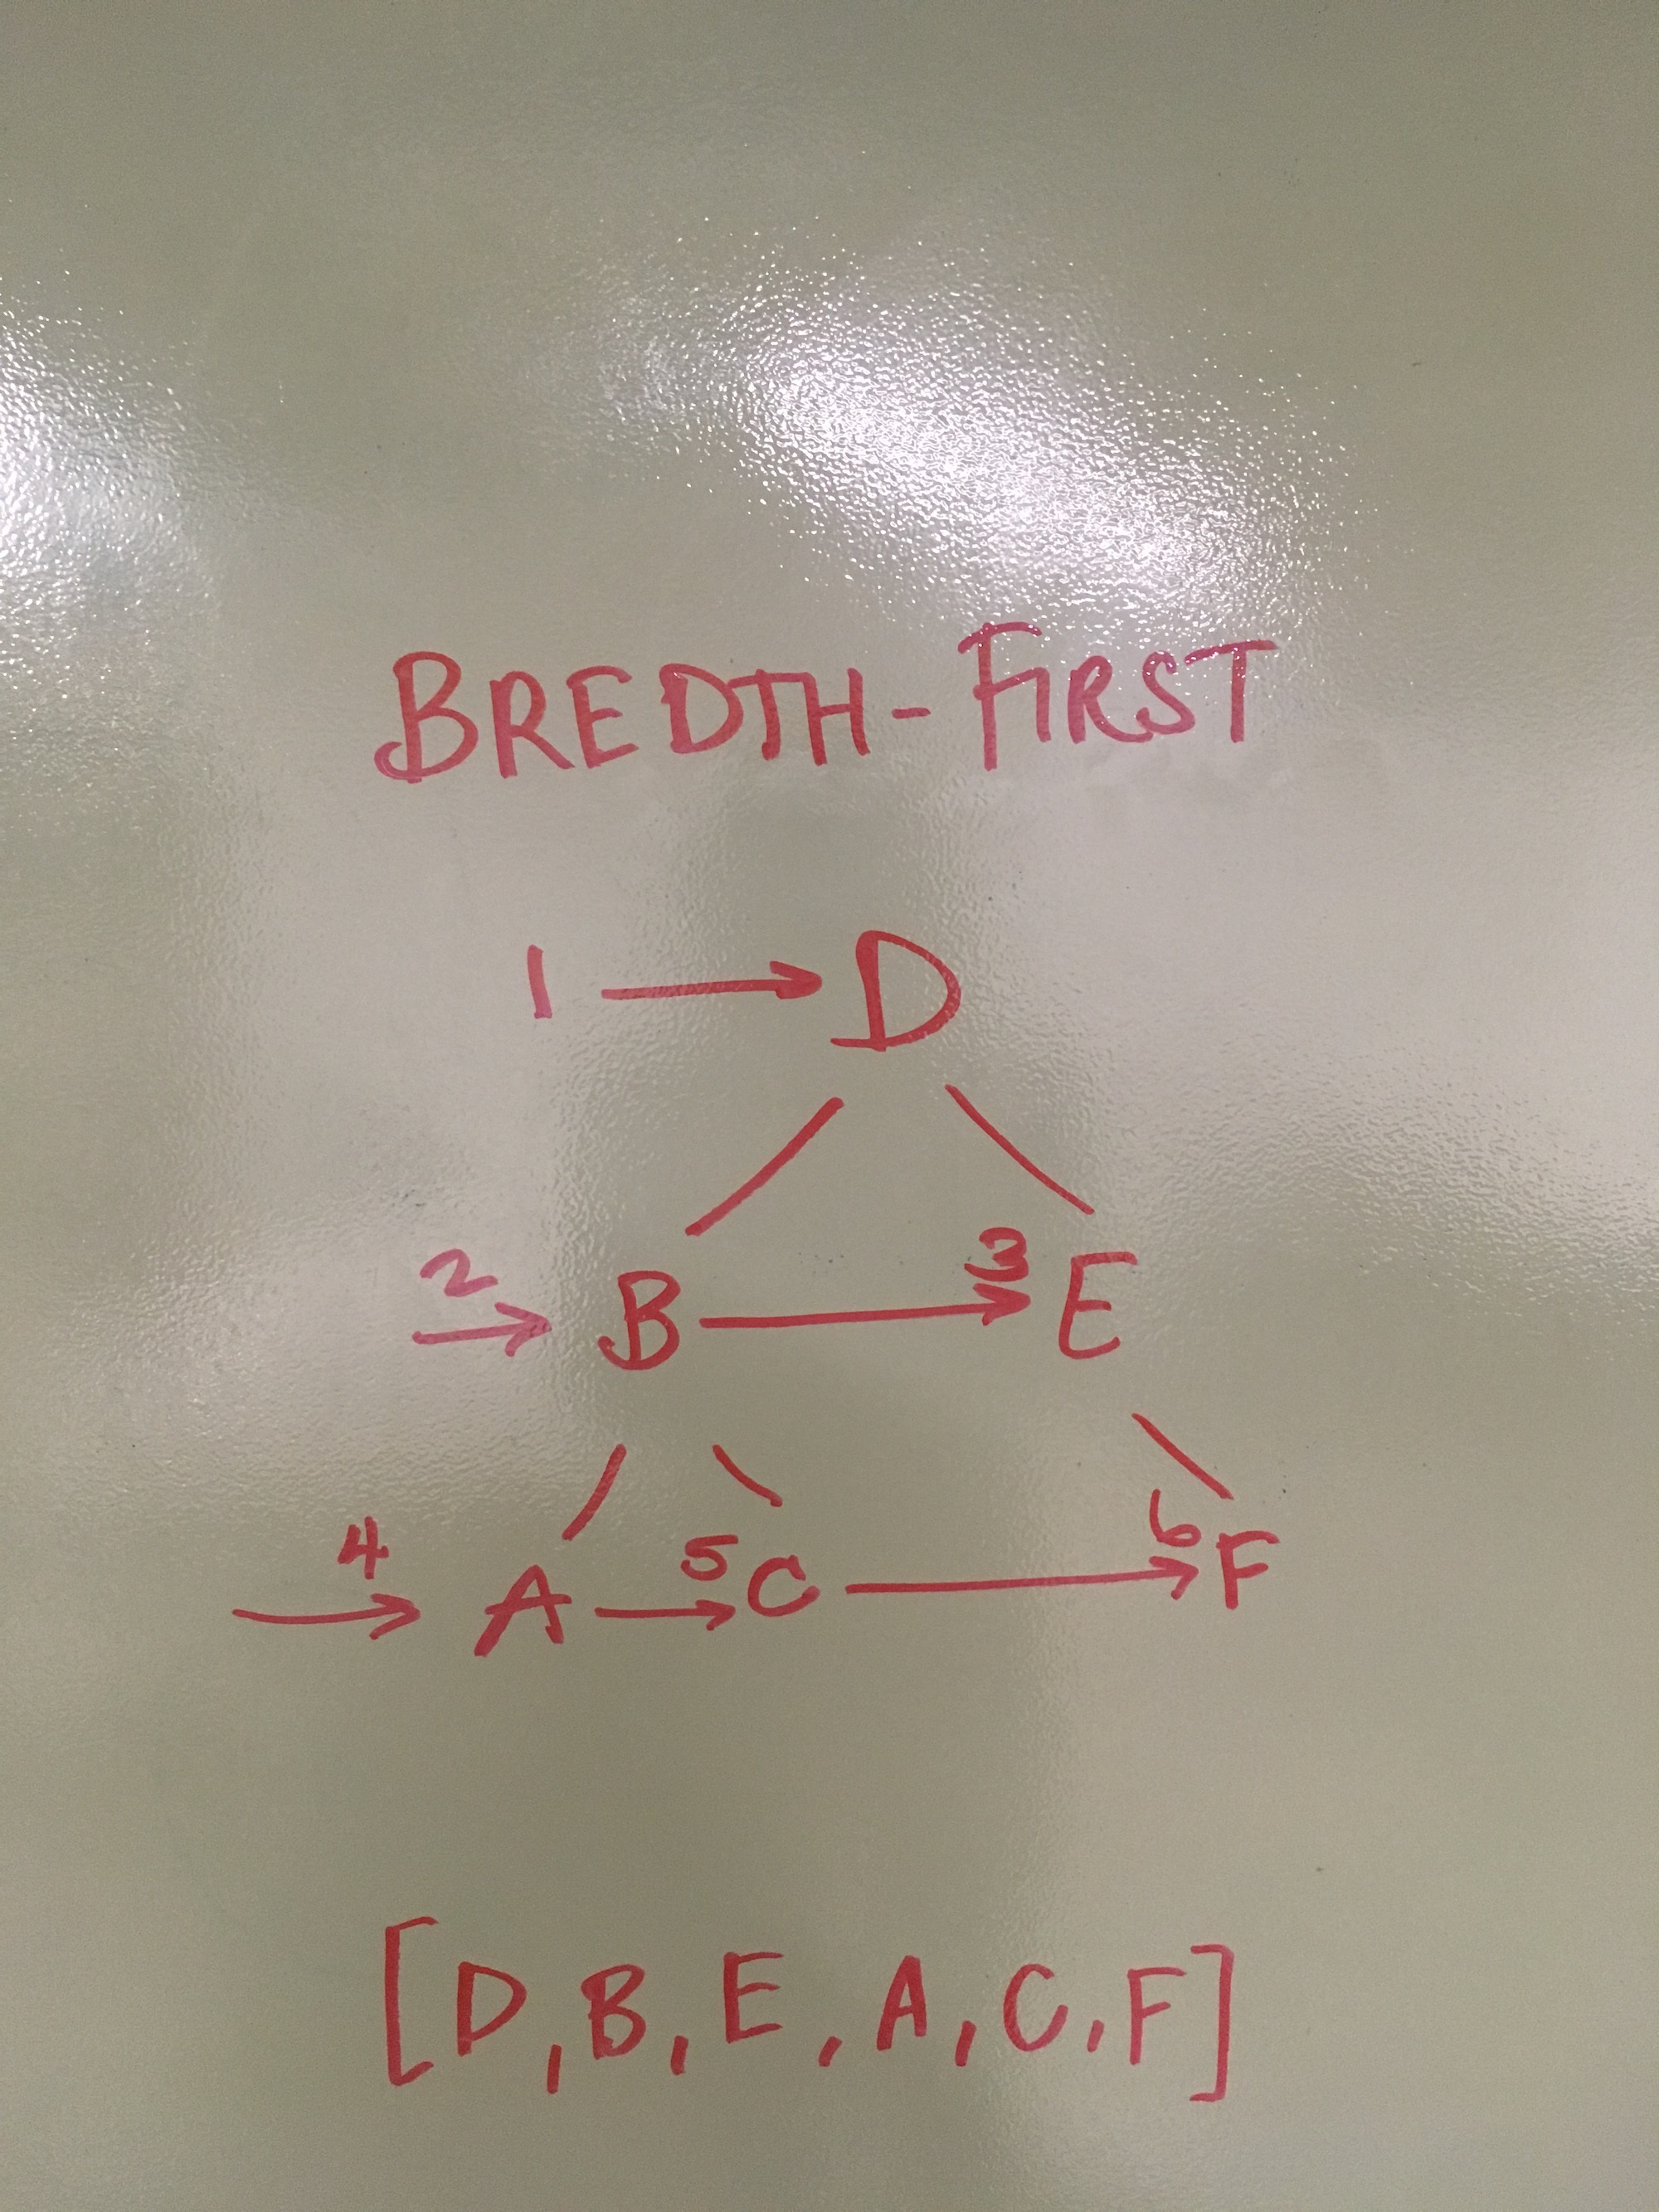 BREDTH-FIRST
1 D
2 B 3 E
4 A 5 C 6 F
[D, B, E, A, C, F]